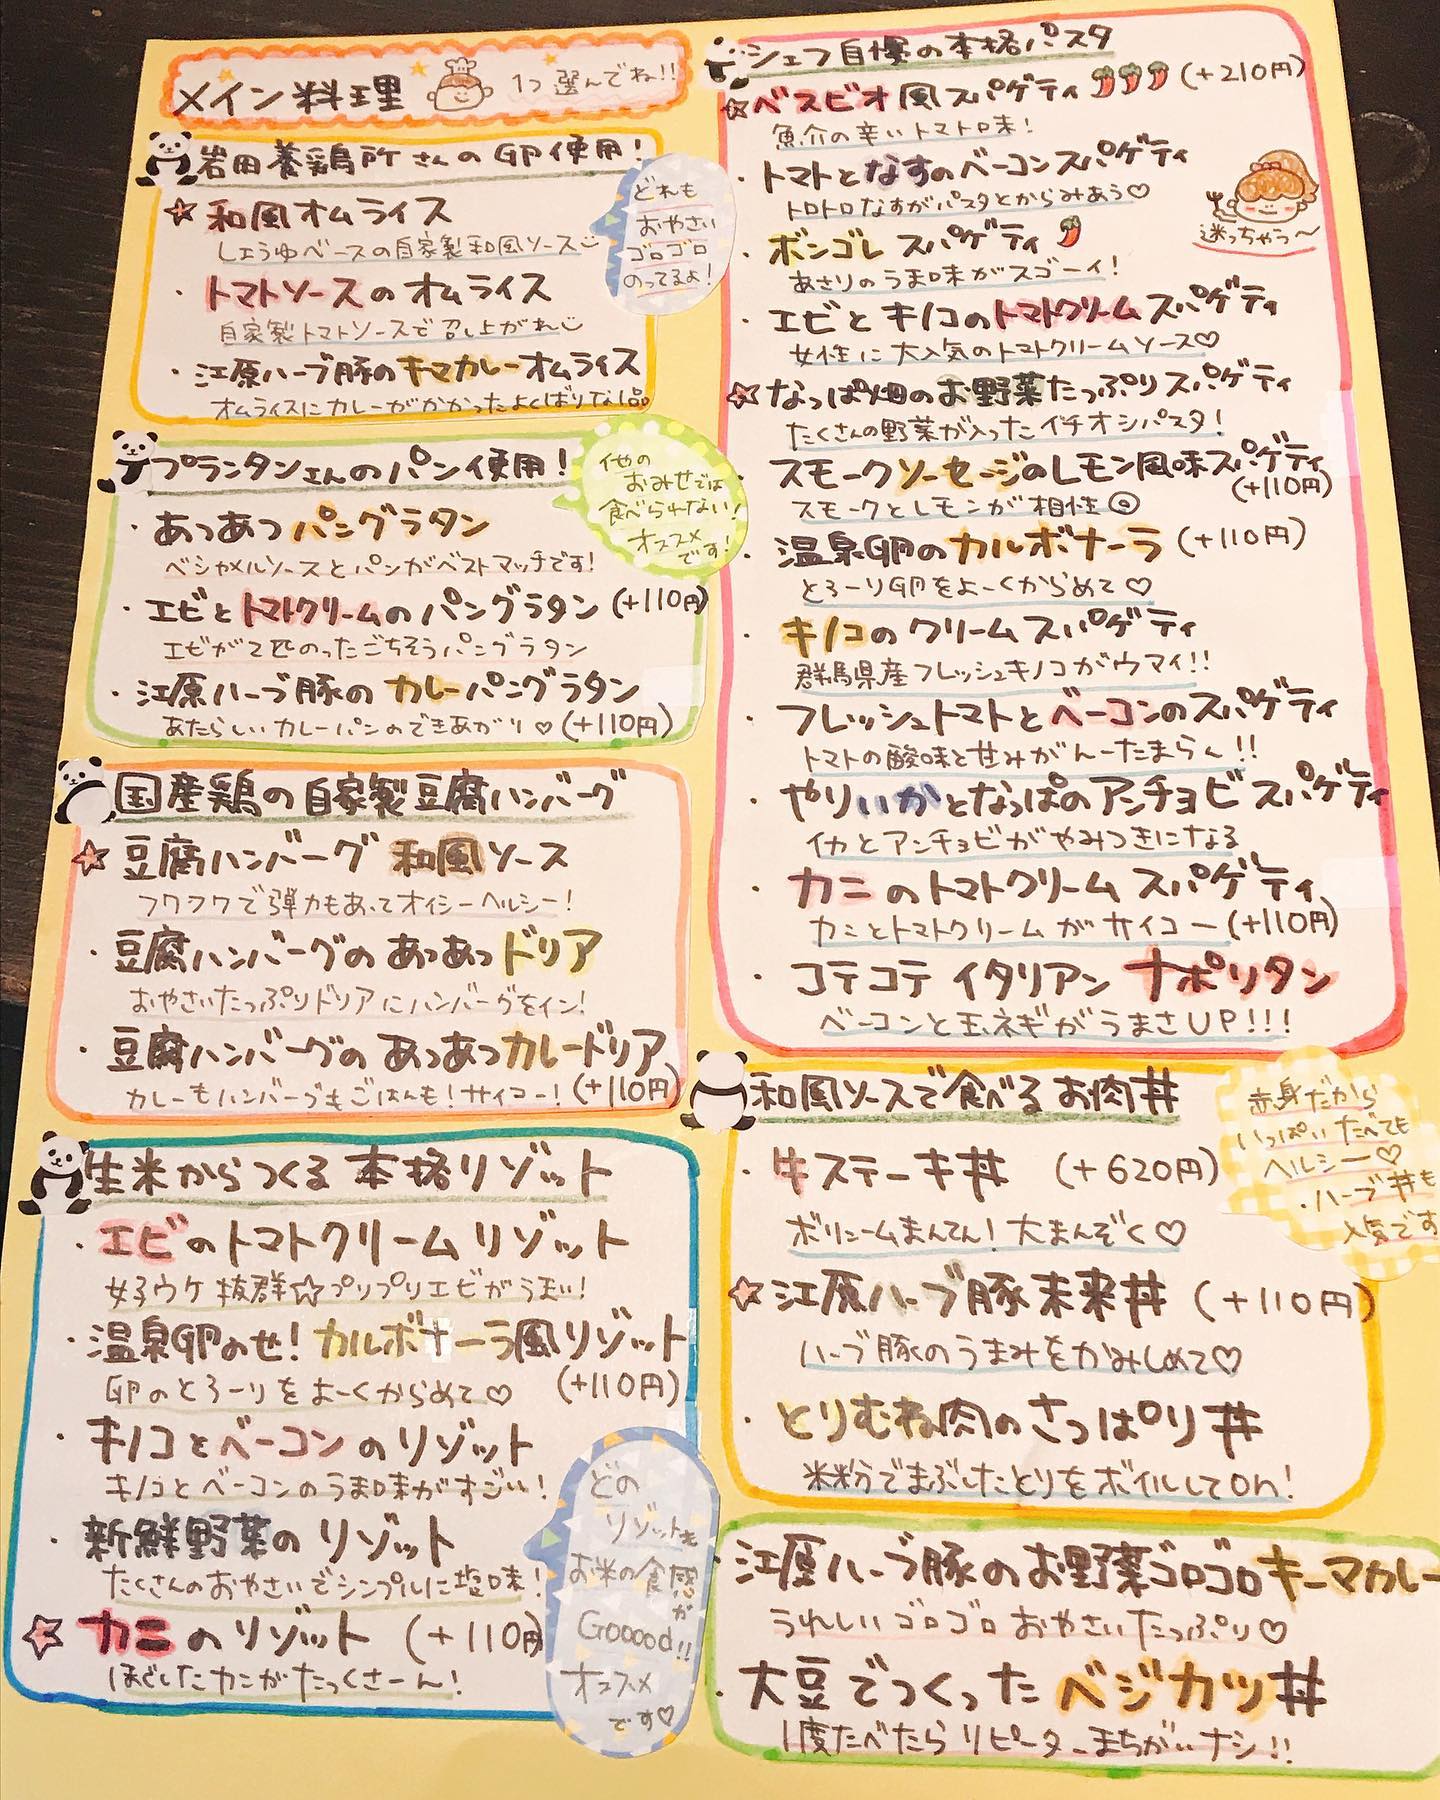 メイン料理
1つ選んでね!!
岩田養鶏所さんの卵使用!
どれも
おやさい
ゴロゴロ
のってるよ!
☆和風オムライス
しょうゆベースの自家製和風ソース
・トマトソースのオムライス
自家製トマトソースで召し上がれ
・江原ハーブ豚のキーマカレーオムライス
オムライスにカレーがかかったよくばりな1品
プランタンさんのパン使用!
他の
おみせでは
食べられない!
オススメ
です!
・あつあつパングラタン
ベシャメルソースとパンがベストマッチです!
・エビとトマトクリームのパングラタン(+110円)
エビが2匹のったごちそうパングラタン
・江原ハーブ豚のカレーパングラタン
あたらしいカレーパンのできあがり♡(+110円)
国産鶏の自家製豆腐ハンバーグ
☆豆腐ハンバーグ 和風ソース
フワフワで弾力もあってオイシーヘルシー!
・豆腐ハンバーグのあつあつドリア
おやさいたっぷりドリアにハンバーグをイン!
・豆腐ハンバーグのあつあつカレードリア
カレーもハンバーグもごはんも!サイコー!(+110円)
生米からつくる本格リゾット
・エビのトマトクリームリゾット
女子ウケ抜群☆プリプリエビがうまい!
・温泉卵のせ!カルボナーラ風リゾット
卵のとろーりをよーくからめて♡ (+110円)
・キノコとベーコンのリゾット
キノコとベーコンのうま味がすごい!
・新鮮野菜のリゾット
たくさんのおやさいでシンプルに塩味!
☆カニのリゾット (+110円)
ほぐしたカニがたっくさーん!
どの
リゾットも
お米の食感
が
Gooood!!
オススメ
です♡
シェフ自慢の本格パスタ
☆ベスビオ風スパゲティ (+210円)
魚介の辛いトマト味!
・トマトとなすのベーコンスパゲティ
トロトロなすがパスタとからみあう♡
迷っちゃう〜
・ボンゴレ スパゲティ
あさりのうま味がスゴーイ!
・エビとキノコのトマトクリームスパゲティ
女性に大人気のトマトクリームソース♡
☆なっぱ畑のお野菜たっぷりスパゲティ
たくさんの野菜が入ったイチオシパスタ!
・スモークソーセージのレモン風味スパゲティ
(+110円)
スモークとレモンが相性◎
・温泉卵のカルボナーラ (+110円)
とろーり卵をよーくからめて♡
・キノコのクリームスパゲティ
群馬県産フレッシュキノコがウマイ!!
・フレッシュトマトとベーコンのスパゲティ
トマトの酸味と甘みがんーたまらん!!
・やりいかとなっぱのアンチョビスパゲティ
イカとアンチョビがやみつきになる
・カニのトマトクリームスパゲティ
カニとトマトクリームがサイコー(+110円)
・コテコテイタリアンナポリタン
ベーコンと玉ネギがうまさUP!!!
和風ソースで食べるお肉丼
赤身だから
いっぱいたべても
ヘルシー♡
・ハーブ丼も
人気です
・牛ステーキ丼 (+620円)
ボリュームまんてん!大まんぞく♡
☆江原ハーブ豚未来丼 (+110円)
ハーブ豚のうまみをかみしめて♡
・とりむね肉のさっぱり丼
米粉でまぶしたとりをボイルしてon!
・江原ハーブ豚のお野菜ゴロゴロキーマカレー
うれしいゴロゴロおやさいたっぷり♡
・大豆でつくったベジカツ丼
1度たべたらリピーターまちがいナシ!!